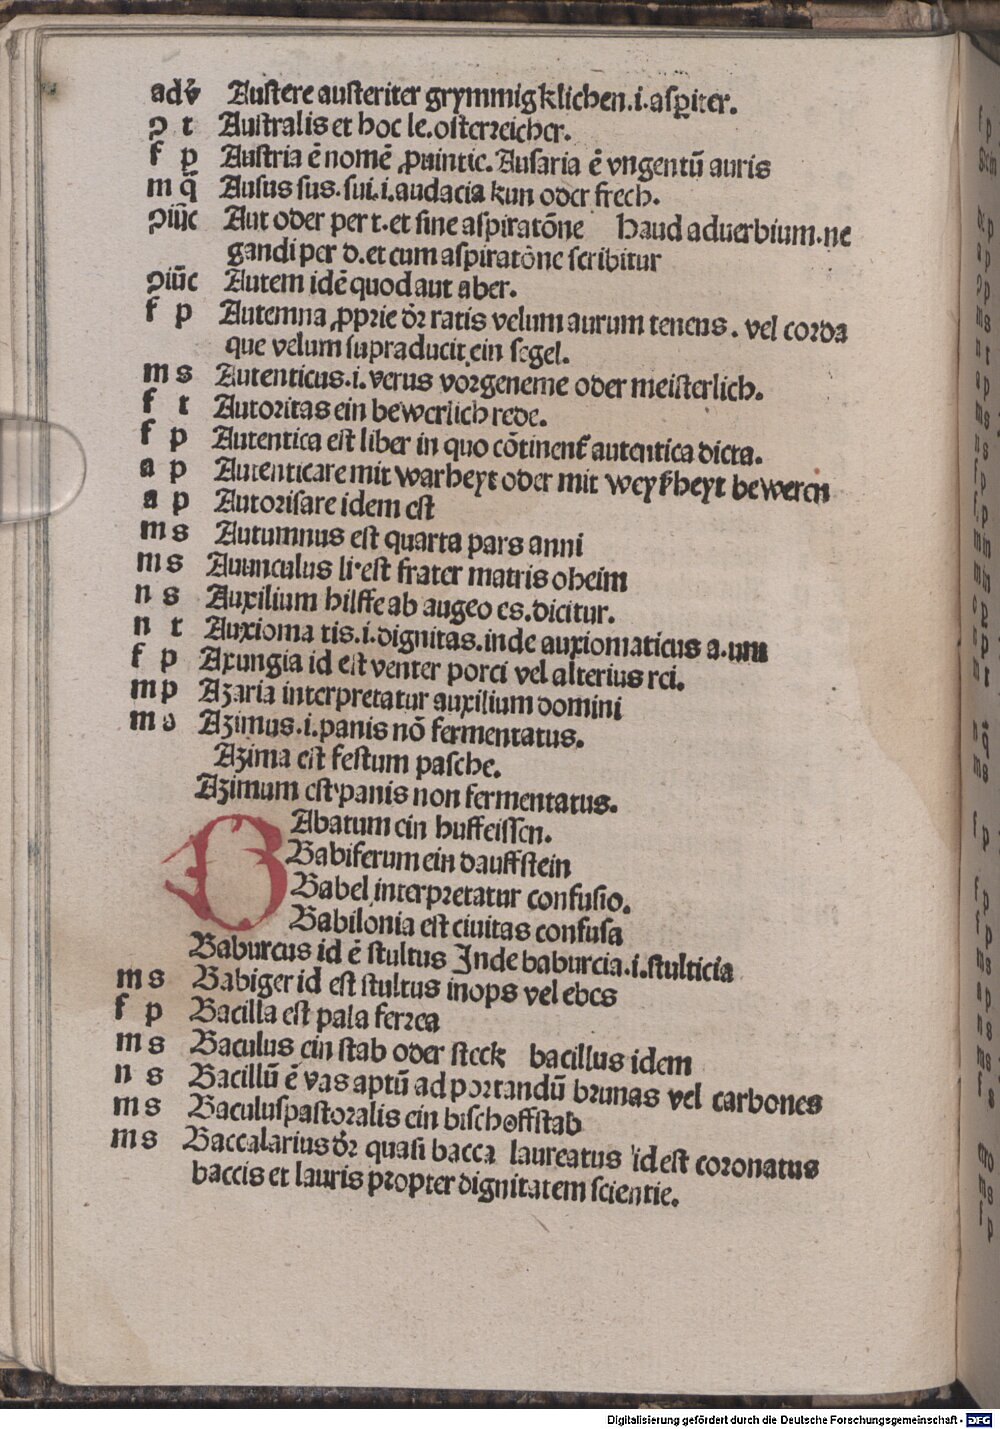 adv̾ Austere austeriter grymmigklichen.i.aspiter.
ꝯ t Australis et hoc le.osterreicher.
f p Austria ē nomē ꝓuintie. Ausaria ē vngentū auris
m q̄ Ausus sus.sui.i.audacia kun oder frech.
ꝯiūc Aut oder per t.et sine aspiratōne haud aduerbium.ne
gandi per d.et cum aspiratōne scribitur
ꝯiūc Autem idē quod aut aber.
f p Autemna ꝓprie dr̄ ratis velum aurum tenens. vel corda
que velum supraducit ein segel.
m s Autenticus.i.verus vorgeneme oder meisterlich.
f t Autoritas ein bewerlich rede.
f p Autentica est liber in quo cōtinent̾ autentica dicta.
a p Autenticare mit warheyt oder mit weyſ̄heyt beweren
a p Autorisare idem est
m s Autumnus est quarta pars anni
m s Auunculus li·est frater matris oheim
n s Auxilium hilffe ab augeo es.dicitur.
n t Auxioma tis.i.dignitas.inde auxiomaticus a.um
f p Axungia id est venter porci vel alterius rei.
m p Azaria interpretatur auxilium domini
m s Azimus.i.panis nō fermentatus.
Azima est festum pasche.
Azimum est panis non fermentatus.
BAbatum ein huffeissen.
Babiferum ein dauffstein
Babel interpretatur confusio.
Babilonia est ciuitas confusa
Baburcus id ē stultus Inde baburcia.i.stulticia
m s Babiger id est stultus inops vel ebes
f p Bacilla est pala ferrea
m s Baculus ein stab oder steck bacillus idem
n s Bacillū ē vas aptū ad portandū brunas vel carbones
m s Baculuspastoralis ein bischoffstab
m s Baccalarius dr̄ quasi bacca laureatus id est coronatus
baccis et lauris propter dignitatem scientie.
Digitalisierung gefördert durch die Deutsche Forschungsgemeinschaft - DFG